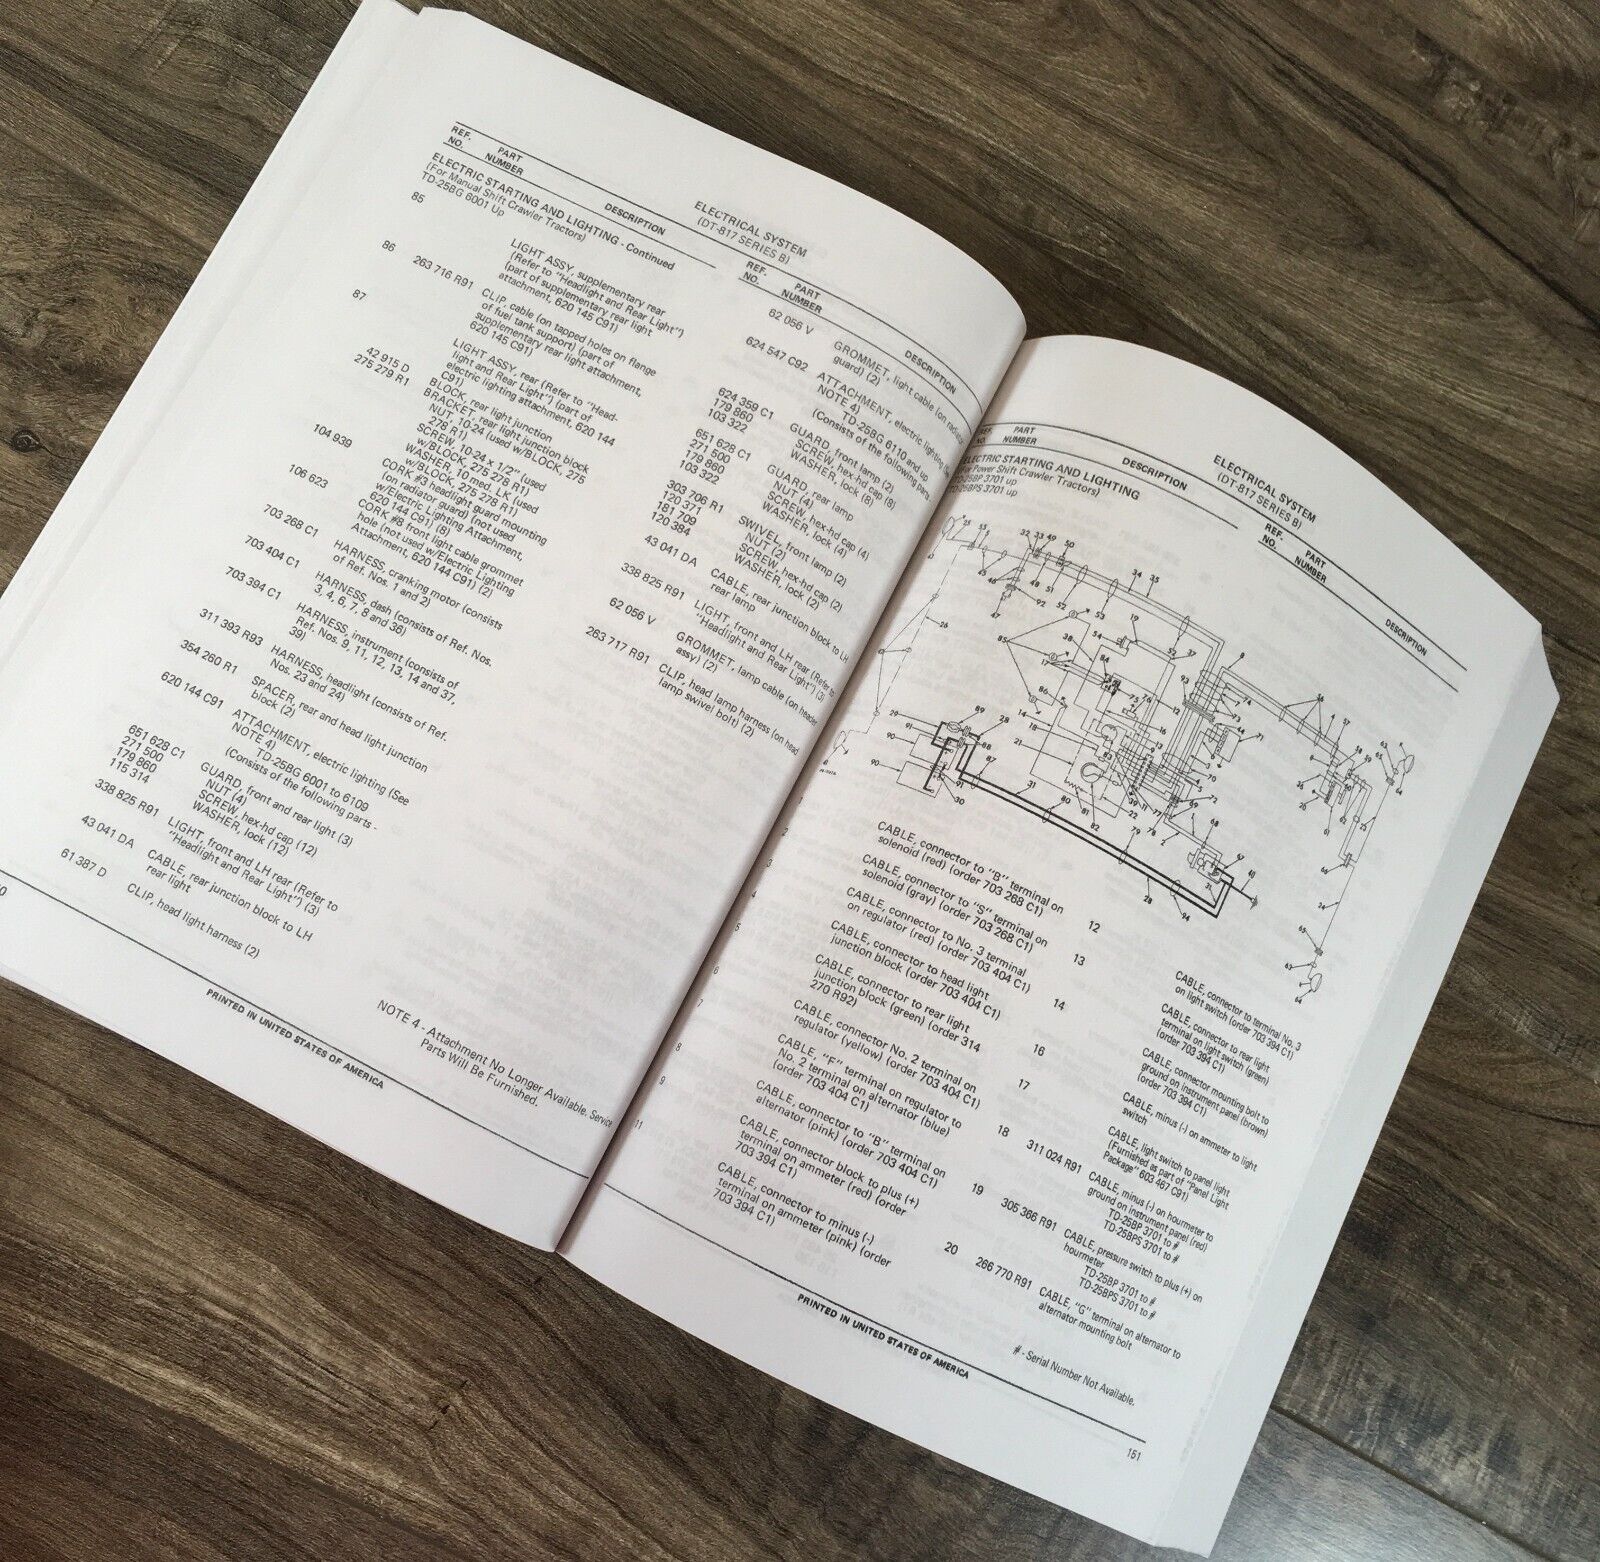 ELECTRICAL SYSTEM
(DT-817 SERIES B)
REF. NO. PART NUMBER DESCRIPTION
ELECTRIC STARTING AND LIGHTING - Continued
(For Manual Shift Crawler Tractors)
TD-25BG 6001 Up
85 LIGHT ASSY, supplementary rear
(Refer to "Headlight and Rear Light")
(part of supplementary rear light
attachment, 620 145 C91)
86 263 716 R91 CLIP, cable (on tapped holes on flange
of fuel tank support) (part of
supplementary rear light attachment,
620 145 C91)
87 LIGHT ASSY, rear (Refer to "Head-
light and Rear Light") (part of
electric lighting attachment, 620 144
C91)
42 915 D BLOCK, rear light junction
275 279 R1 BRACKET, rear light junction block
NUT, 10-24 (used w/BLOCK, 275
278 R1)
SCREW, 10-24 x 1/2" (used
w/BLOCK, 275 278 R1)
WASHER, 10 med. LK (used
w/BLOCK, 275 278 R1)
104 939 CORK #3 headlight guard mounting
(on radiator guard) (not used
w/Electric Lighting Attachment,
620 144 C91) (8)
106 623 CORK #8 front light cable grommet
hole (not used w/Electric Lighting
Attachment, 620 144 C91) (2)
703 268 C1 HARNESS, cranking motor (consists
of Ref. Nos. 1 and 2)
703 404 C1 HARNESS, dash (consists of Ref. Nos.
3, 4, 6, 7, 8 and 36)
703 394 C1 HARNESS, instrument (consists of
Ref. Nos. 9, 11, 12, 13, 14 and 37,
39)
311 393 R93 HARNESS, headlight (consists of Ref.
Nos. 23 and 24)
354 260 R1 SPACER, rear and head light junction
block (2)
620 144 C91 ATTACHMENT, electric lighting (See
NOTE 4)
TD-25BG 6001 to 6109
(Consists of the following parts -
651 628 C1 GUARD, front and rear light (3)
271 500 NUT (4)
179 860 SCREW, hex-hd cap (12)
115 314 WASHER, lock (12)
338 825 R91 LIGHT, front and LH rear (Refer to
"Headlight and Rear Light") (3)
43 041 DA CABLE, rear junction block to LH
rear light
61 387 D CLIP, head light harness (2)
REF. NO. PART NUMBER DESCRIPTION
62 056 V GROMMET, light cable (on radiator
guard) (2)
624 547 C92 ATTACHMENT, electric lighting
NOTE 4)
TD-25BG 6110 and up
(Consists of the following parts
624 359 C1 GUARD, front lamp (2)
179 860 SCREW, hex-hd cap (8)
103 322 WASHER, lock (8)
651 628 C1 GUARD, rear lamp
271 500 NUT (4)
179 860 SCREW, hex-hd cap (4)
103 322 WASHER, lock (4)
303 706 R1 SWIVEL, front lamp (2)
120 371 NUT (2)
181 709 SCREW, hex-hd cap (2)
120 384 WASHER, lock (2)
43 041 DA CABLE, rear junction block to LH
rear lamp
338 825 R91 LIGHT, front and LH rear (Refer to
"Headlight and Rear Light") (3)
62 056 V GROMMET, lamp cable (on header
assy) (2)
263 717 R91 CLIP, head lamp harness (on head
lamp swivel bolt) (2)
NOTE 4 - Attachment No Longer Available. Service
Parts Will Be Furnished.
PRINTED IN UNITED STATES OF AMERICA
ELECTRICAL SYSTEM
(DT-817 SERIES B)
REF. NO. PART NUMBER DESCRIPTION
REF. NO. PART NUMBER DESCRIPTION
ELECTRIC STARTING AND LIGHTING
(For Power Shift Crawler Tractors)
TD-25BP 3701 up
TD-25BPS 3701 up
1 CABLE, connector to "B" terminal on
solenoid (red) (order 703 268 C1)
2 CABLE, connector to "S" terminal on
solenoid (gray) (order 703 268 C1)
3 CABLE, connector to No. 3 terminal
on regulator (red) (order 703 404 C1)
4 CABLE, connector to head light
junction block (order 703 404 C1)
5 CABLE, connector to rear light
junction block (green) (order 314
270 R92)
6 CABLE, connector No. 2 terminal on
regulator (yellow) (order 703 404 C1)
7 CABLE, "F" terminal on regulator to
No. 2 terminal on alternator (blue)
(order 703 404 C1)
8 CABLE, connector to "B" terminal on
alternator (pink) (order 703 404 C1)
9 CABLE, connector block to plus (+)
terminal on ammeter (red) (order
703 394 C1)
11 CABLE, connector to minus (-)
terminal on ammeter (pink) (order
703 394 C1)
12 CABLE, connector to terminal No. 3
on light switch (order 703 394 C1)
13 CABLE, connector to rear light
terminal on light switch (green)
(order 703 394 C1)
14 CABLE, connector mounting bolt to
ground on instrument panel (brown)
(order 703 394 C1)
16 CABLE, minus (-) on ammeter to light
switch
17 CABLE, light switch to panel light
(Furnished as part of "Panel Light
Package" 603 467 C91)
18 311 024 R91 CABLE, minus (-) on hourmeter to
ground on instrument panel (red)
TD-25BP 3701 to #
TD-25BPS 3701 to #
19 305 366 R91 CABLE, pressure switch to plus (+) on
hourmeter
TD-25BP 3701 to #
TD-25BPS 3701 to #
20 266 770 R91 CABLE, "G" terminal on alternator to
alternator mounting bolt
# - Serial Number Not Available.
PRINTED IN UNITED STATES OF AMERICA
151